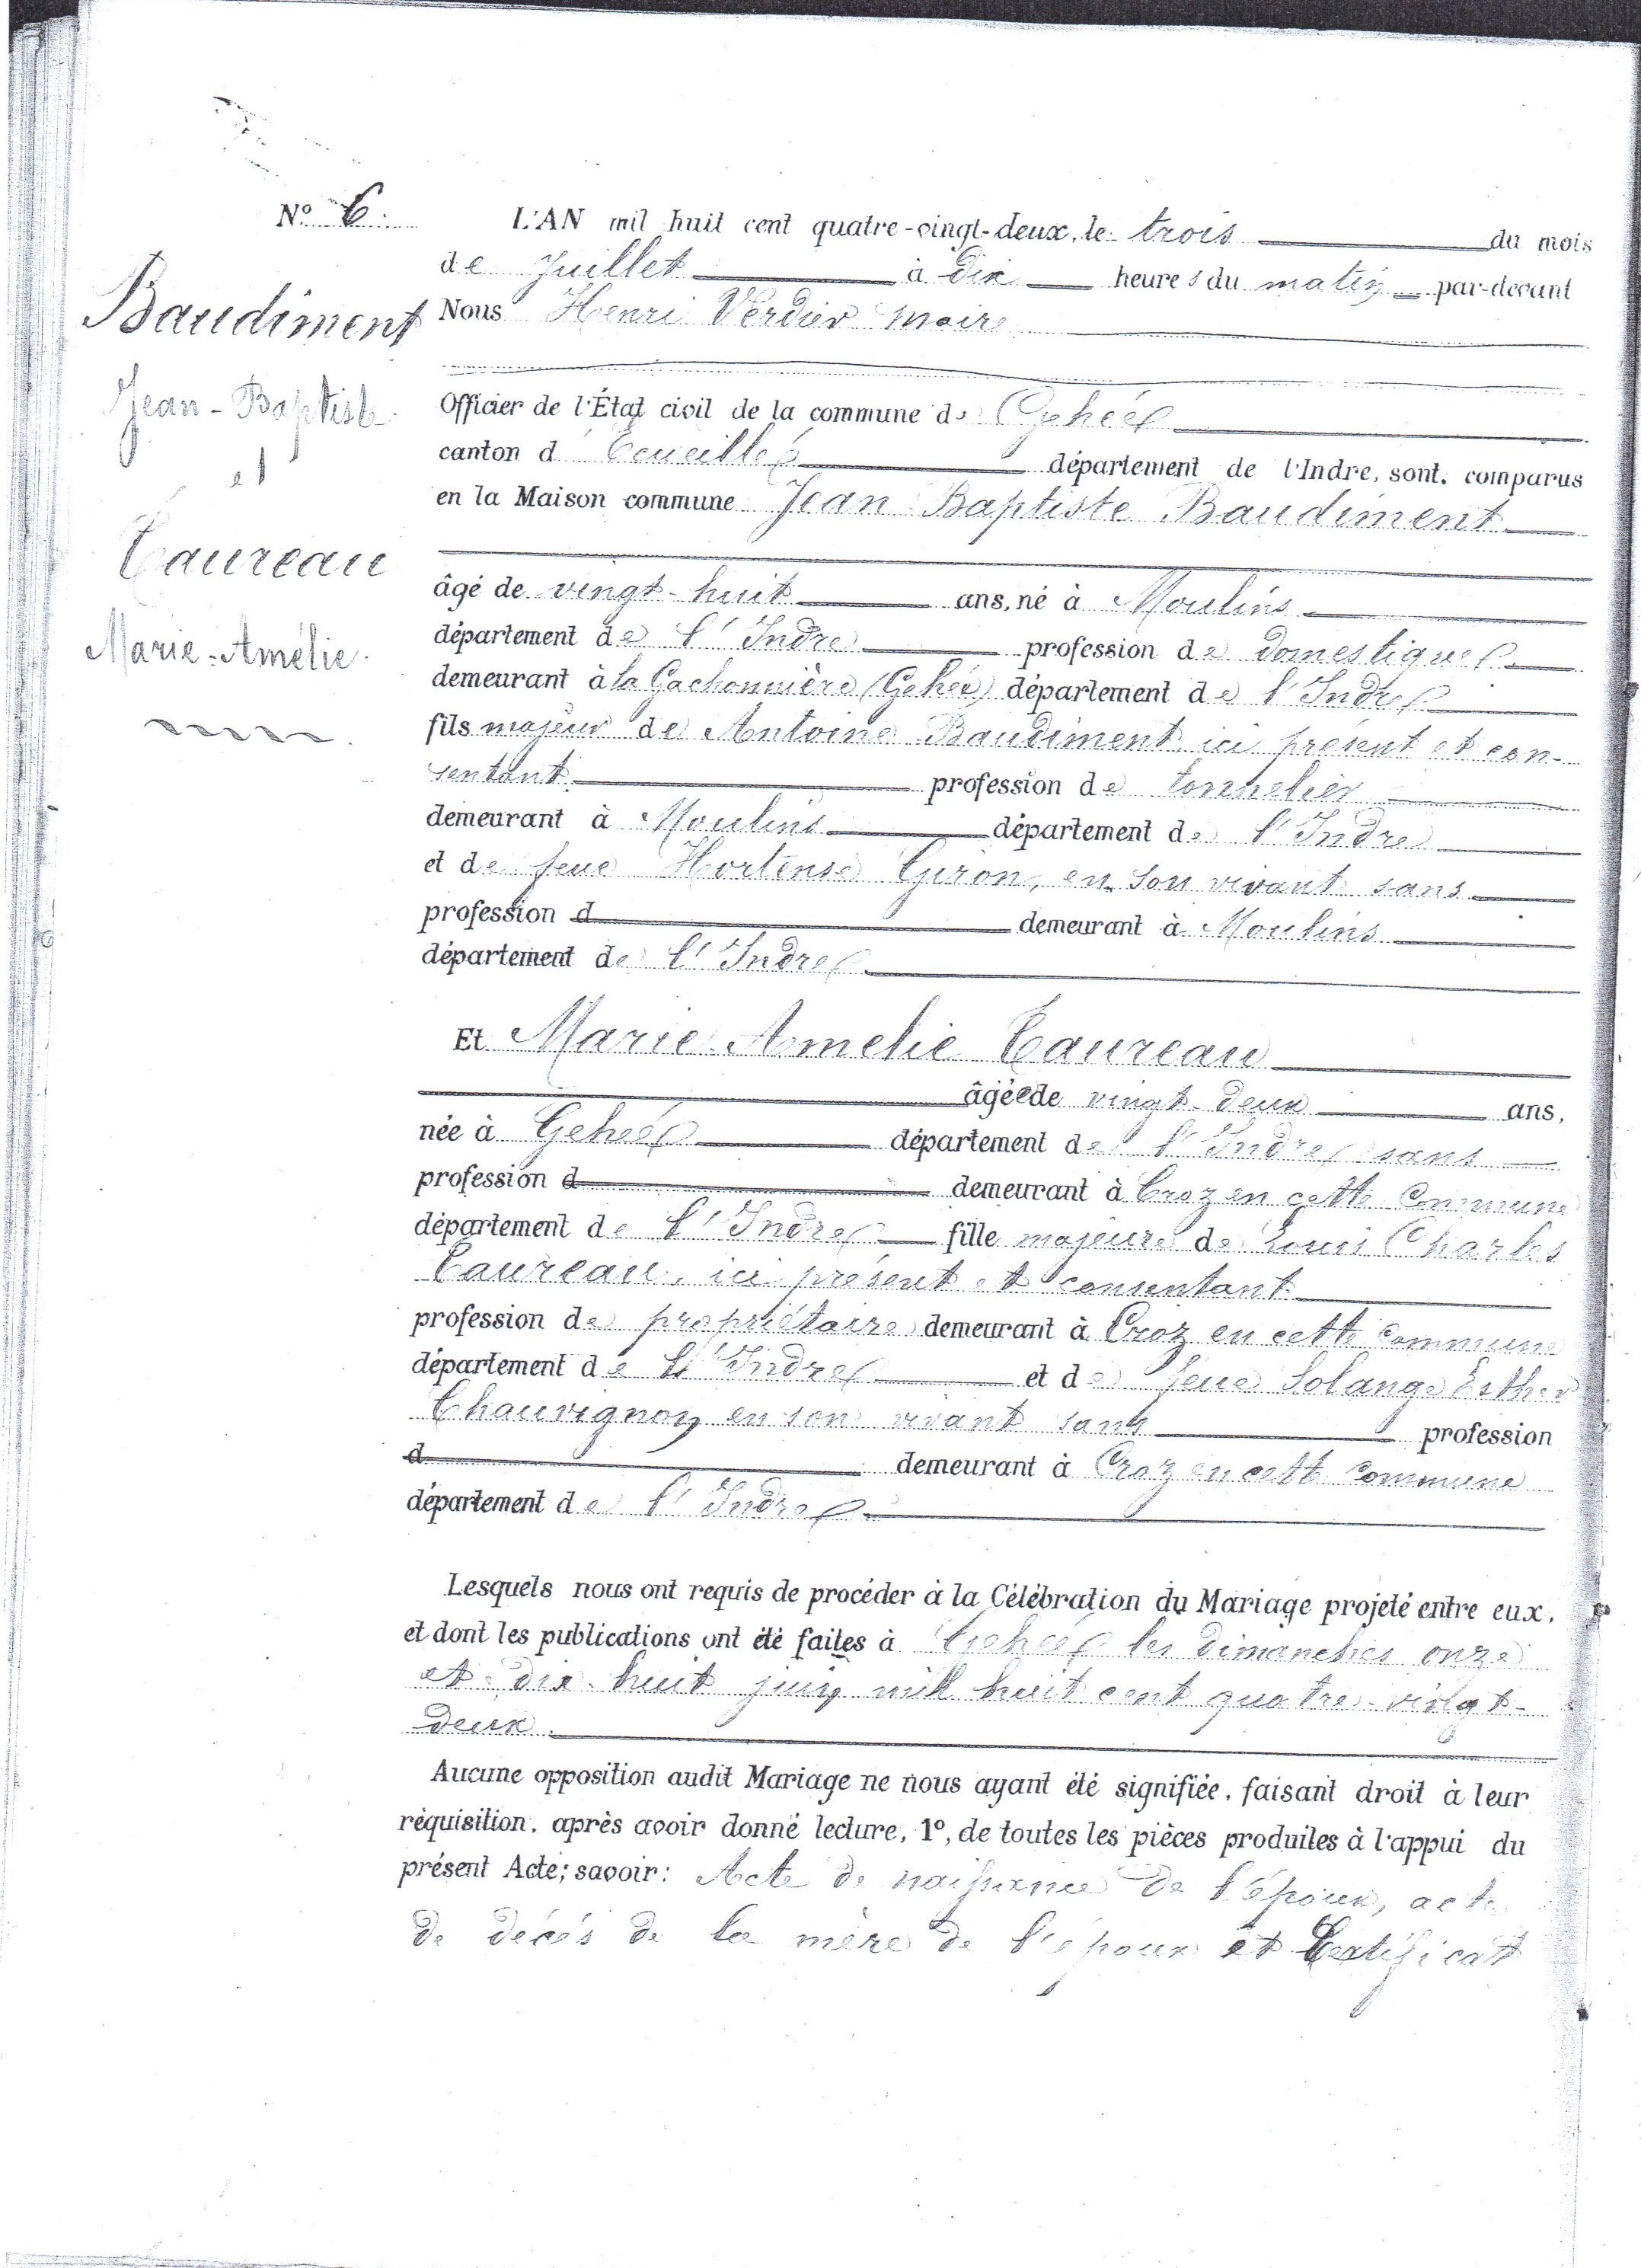 N° 6.
Baudiment
Jean-Baptiste
et
Taureau
Marie-Amélie.
L'AN mil huit cent quatre-vingt-deux, le trois du mois
de Juillet à Dix heures du matin par-devant
Nous Henri Verdier maire
Officier de l'État civil de la commune de Gehée
canton d'Écueillé département de l'Indre, sont comparus
en la Maison commune Jean Baptiste Baudiment
âgé de vingt-huit ans, né à Moulins
département de l'Indre profession de domestique
demeurant à la Gachonnière (Gehée) département de l'Indre
fils majeur de Antoine Baudiment ici présent et con-
sentant profession de tonnelier
demeurant à Moulins département de l'Indre
et de feue Hortense Giron, en son vivant sans
profession d demeurant à Moulins
département de l'Indre
Et Marie Amelie Taureau
âgée de vingt-deux ans,
née à Gehée département de l'Indre sans
profession d demeurant à Croz en cette Commune
département de l'Indre fille majeure de Louis Charles
Taureau, ici présent et consentant
profession de propriétaire demeurant à Croz en cette commune
département de l'Indre et de feue Solange Esther
Chauvignon en son vivant sans profession
d demeurant à Croz en cette commune
département de l'Indre
Lesquels nous ont requis de procéder à la Célébration du Mariage projeté entre eux,
et dont les publications ont été faites à Gehée les dimanches onze
et dix-huit juin mil huit cent quatre-vingt-
deux.
Aucune opposition audit Mariage ne nous ayant été signifiée, faisant droit à leur
réquisition, après avoir donné lecture, 1°, de toutes les pièces produites à l'appui du
présent Acte; savoir: Acte de naissance de l'époux, acte
de décés de la mère de l'époux et Certificat